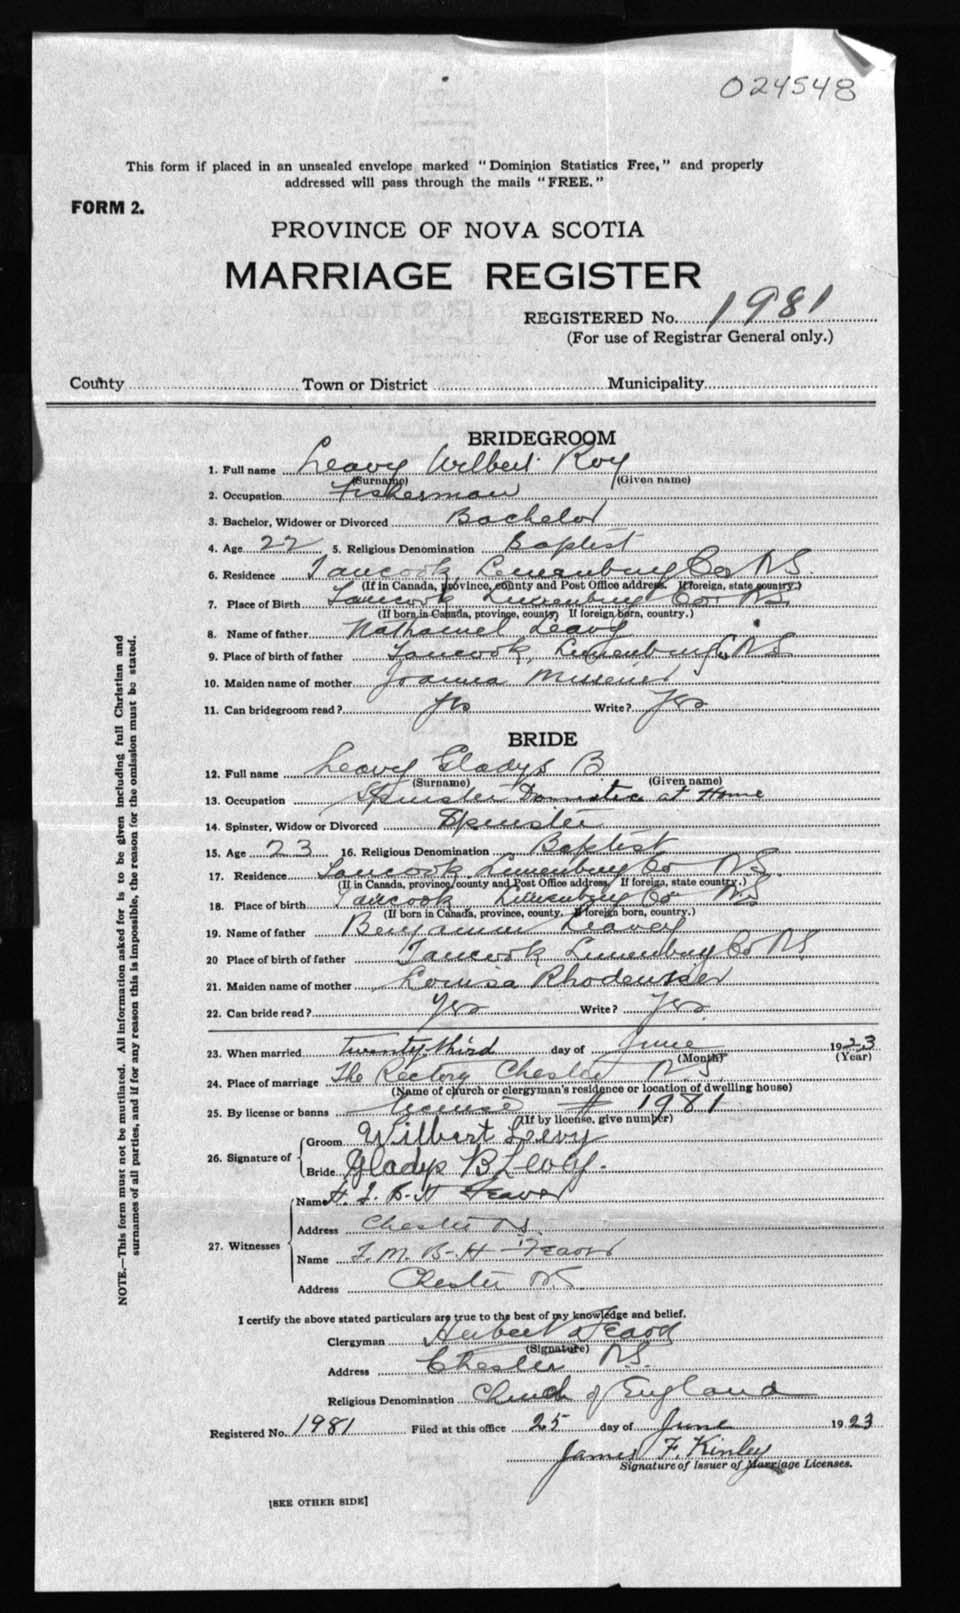 024548
This form if placed in an unsealed envelope marked "Dominion Statistics Free," and properly
addressed will pass through the mails "FREE."
FORM 2.
PROVINCE OF NOVA SCOTIA
MARRIAGE REGISTER
REGISTERED No. 1981
(For use of Registrar General only.)
County Town or District Municipality
BRIDEGROOM
1. Full name Leavy Wilbert Roy
(Surname) (Given name)
2. Occupation Fisherman
3. Bachelor, Widower or Divorced Bachelor
4. Age 22 5. Religious Denomination Baptist
6. Residence Tancook, Lunenburg Co N.S.
(If in Canada, province, county and Post Office address. If foreign, state country.)
7. Place of Birth Tancook Lunenburg Co. N.S.
(If born in Canada, province, county. If foreign born, country.)
8. Name of father Nathaniel Leavy
9. Place of birth of father Tancook, Lunenburg Co NS
10. Maiden name of mother Joanna
11. Can bridegroom read? Yes Write? Yes
BRIDE
12. Full name Leavy Gladys B
(Surname) (Given name)
13. Occupation Spinster Domestic at Home
14. Spinster, Widow or Divorced Spinster
15. Age 23 16. Religious Denomination Baptist
17. Residence Tancook Lunenburg Co N.S.
(If in Canada, province, county and Post Office address. If foreign, state country.)
18. Place of birth Tancook Lunenburg Co NS
(If born in Canada, province, county, If foreign born, country.)
19. Name of father Benjamin Leavey
20 Place of birth of father Tancook Lunenburg Co N.S.
21. Maiden name of mother Louisa Rhodeniser
22. Can bride read? Yes Write? Yes
23. When married Twenty third day of June 1923
(Month) (Year)
24. Place of marriage The Rectory Chester N.S.
(Name of church or clergyman's residence or location of dwelling house)
25. By license or banns License # 1981
(If by license, give number)
26. Signature of
Groom Wilbert Leevy
Bride Gladys B Levy.
27. Witnesses
Name
Address Chester NS
Name
Address Chester NS
I certify the above stated particulars are true to the best of my knowledge and belief.
Clergyman Herbert
(Signature)
Address Chester N.S.
Religious Denomination Church of England
Registered No. 1981 Filed at this office 25 day of June 1923
James F. Kinley
Signature of Issuer of Marriage Licenses.
[SEE OTHER SIDE]
NOTE.—This form must not be mutilated. All information asked for is to be given including full Christian and
surnames of all parties, and if for any reason this is impossible, the reason for the omission must be stated.